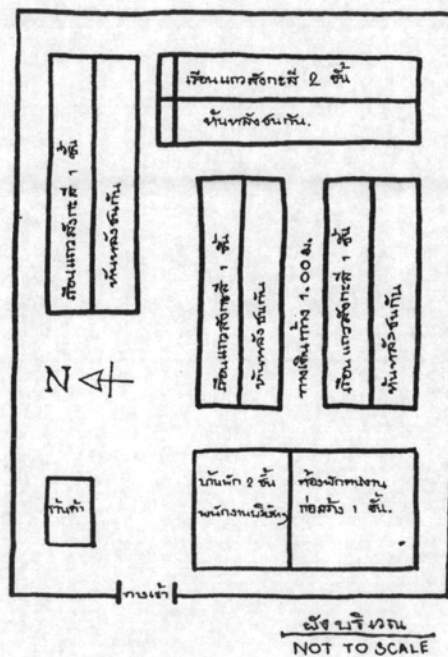 เรือนแถวสังกะสี 2 ชั้น
หันหลังชนกัน.
เรือนแถวสังกะสี 1 ชั้น
หันหลังชนกัน
เรือนแถวสังกะสี 1 ชั้น
หันหลังชนกัน
ทางเดินกว้าง 1.00 ม.
เรือนแถวสังกะสี 1 ชั้น
หันหลังชนกัน
N
ร้านค้า
บ้านพัก 2 ชั้น
พนักงานบริษัทฯ
ห้องพักคนงาน
ก่อสร้าง 1 ชั้น.
ทางเข้า
ผังบริเวณ
NOT TO SCALE